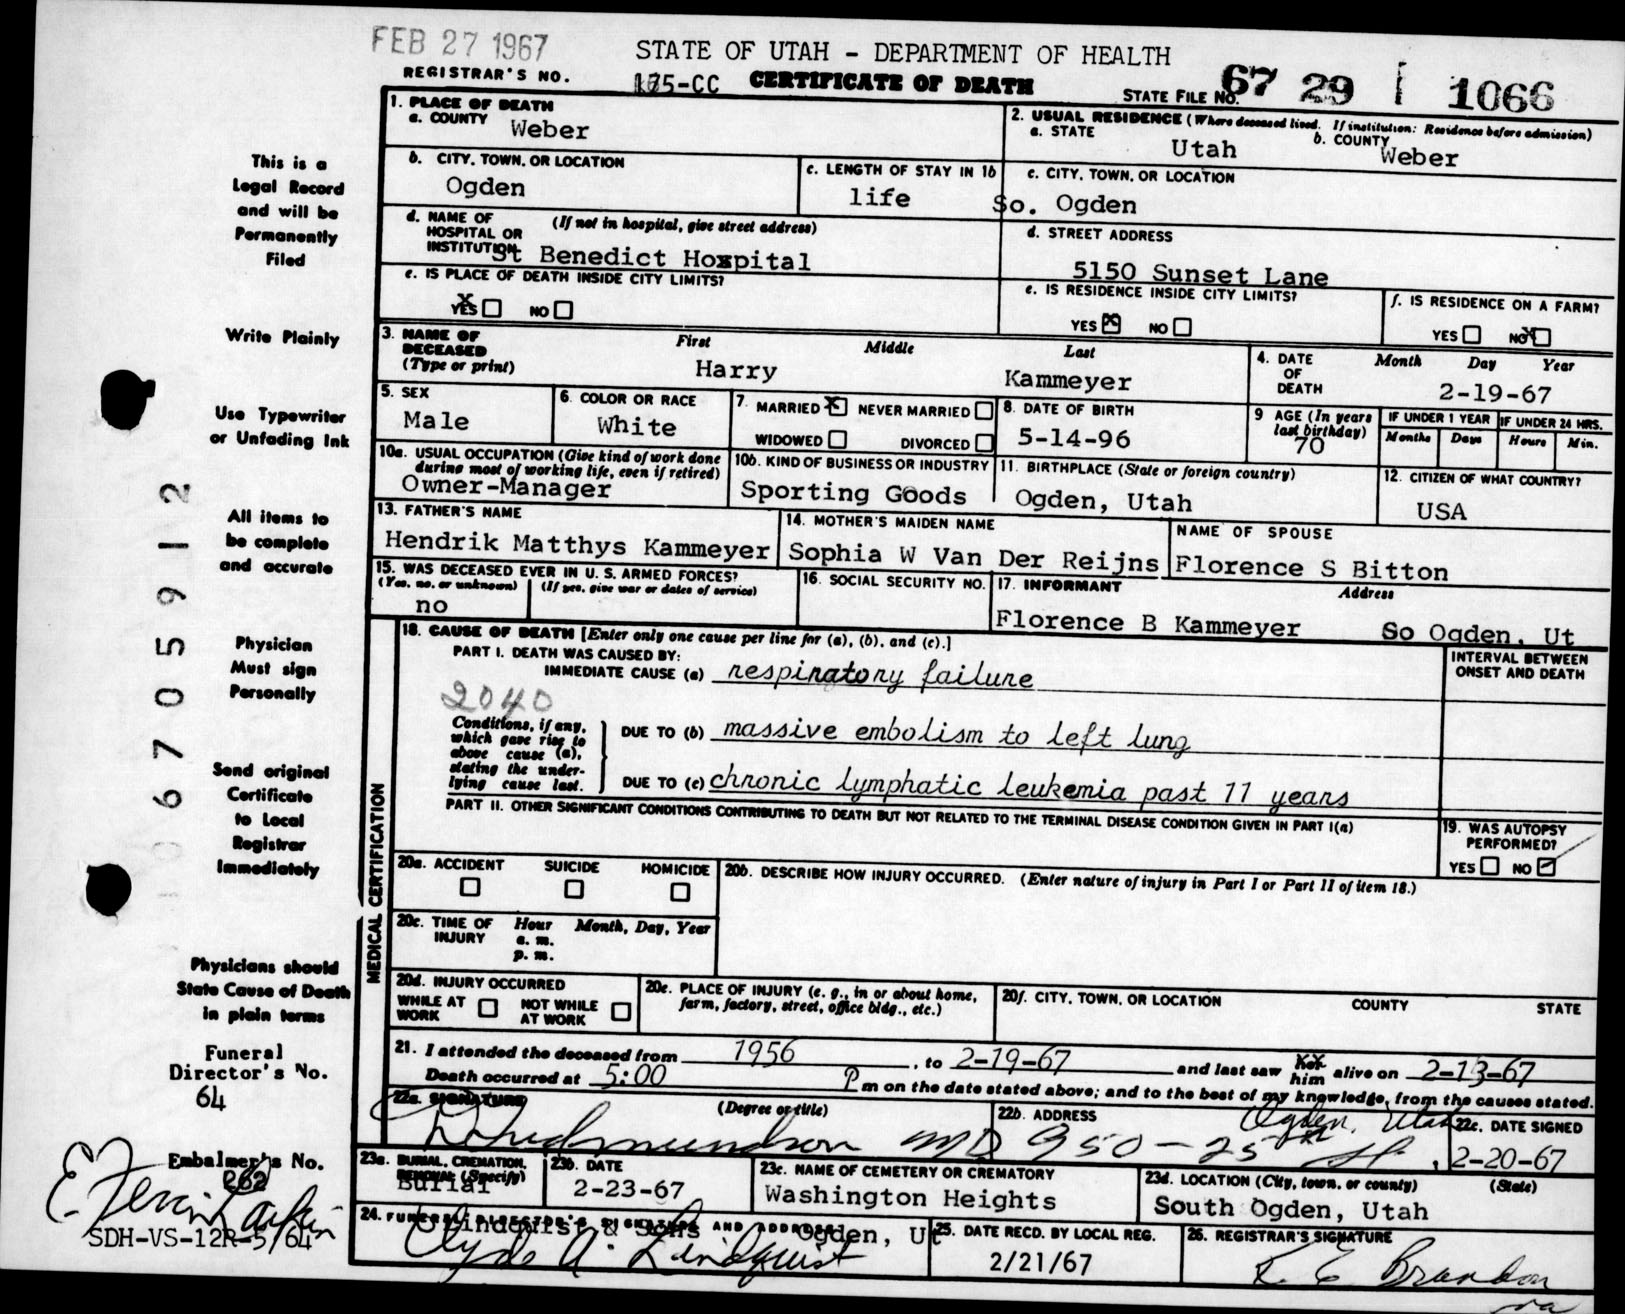 FEB 27 1967
STATE OF UTAH - DEPARTMENT OF HEALTH
REGISTRAR'S NO. 175-CC CERTIFICATE OF DEATH STATE FILE NO. 67 29 1066
1. PLACE OF DEATH
a. COUNTY Weber
2. USUAL RESIDENCE (Where deceased lived. If institution: Residence before admission)
a. STATE Utah b. COUNTY Weber
b. CITY, TOWN, OR LOCATION Ogden
c. LENGTH OF STAY IN 1b life
c. CITY, TOWN, OR LOCATION So. Ogden
d. NAME OF HOSPITAL OR INSTITUTION (If not in hospital, give street address) St Benedict Hospital
d. STREET ADDRESS 5150 Sunset Lane
e. IS PLACE OF DEATH INSIDE CITY LIMITS?
YES X NO
e. IS RESIDENCE INSIDE CITY LIMITS?
YES X NO
f. IS RESIDENCE ON A FARM?
YES NO X
3. NAME OF DECEASED (Type or print) First Middle Last
Harry Kammeyer
4. DATE OF DEATH Month Day Year
2-19-67
5. SEX Male
6. COLOR OR RACE White
7. MARRIED X NEVER MARRIED
WIDOWED DIVORCED
8. DATE OF BIRTH 5-14-96
9 AGE (In years last birthday) 70
IF UNDER 1 YEAR Months Days
IF UNDER 24 HRS. Hours Min.
10a. USUAL OCCUPATION (Give kind of work done during most of working life, even if retired)
Owner-Manager
10b. KIND OF BUSINESS OR INDUSTRY
Sporting Goods
11. BIRTHPLACE (State or foreign country)
Ogden, Utah
12. CITIZEN OF WHAT COUNTRY?
USA
13. FATHER'S NAME
Hendrik Matthys Kammeyer
14. MOTHER'S MAIDEN NAME
Sophia W Van Der Reijns
NAME OF SPOUSE
Florence S Bitton
15. WAS DECEASED EVER IN U. S. ARMED FORCES?
(Yes, no, or unknown) (If yes, give war or dates of service)
no
16. SOCIAL SECURITY NO.
17. INFORMANT Address
Florence B Kammeyer So Ogden, Ut
MEDICAL CERTIFICATION
18. CAUSE OF DEATH [Enter only one cause per line for (a), (b), and (c).]
PART I. DEATH WAS CAUSED BY:
IMMEDIATE CAUSE (a) respiratory failure
INTERVAL BETWEEN ONSET AND DEATH
2040
Conditions, if any, which gave rise to above cause (a), stating the underlying cause last.
DUE TO (b) massive embolism to left lung
DUE TO (c) chronic lymphatic leukemia past 11 years
PART II. OTHER SIGNIFICANT CONDITIONS CONTRIBUTING TO DEATH BUT NOT RELATED TO THE TERMINAL DISEASE CONDITION GIVEN IN PART I(a)
19. WAS AUTOPSY PERFORMED?
YES NO
20a. ACCIDENT SUICIDE HOMICIDE
20b. DESCRIBE HOW INJURY OCCURRED. (Enter nature of injury in Part I or Part II of item 18.)
20c. TIME OF INJURY Hour Month, Day, Year
a. m.
p. m.
20d. INJURY OCCURRED
WHILE AT WORK NOT WHILE AT WORK
20e. PLACE OF INJURY (e. g., in or about home, farm, factory, street, office bldg., etc.)
20f. CITY, TOWN, OR LOCATION COUNTY STATE
21. I attended the deceased from 1956, to 2-19-67 and last saw her him alive on 2-13-67
Death occurred at 5:00 P m on the date stated above; and to the best of my knowledge, from the causes stated.
22a. SIGNATURE (Degree or title) MD
22b. ADDRESS 950-25th St. Ogden, Utah
22c. DATE SIGNED
2-20-67
23a. BURIAL, CREMATION, REMOVAL (Specify)
Burial
23b. DATE
2-23-67
23c. NAME OF CEMETERY OR CREMATORY
Washington Heights
23d. LOCATION (City, town, or county) (State)
South Ogden, Utah
24. FUNERAL DIRECTOR'S SIGNATURE AND ADDRESS
Lindquist & Sons Ogden, Ut
Clyde A. Lindquist
25. DATE RECD. BY LOCAL REG.
2/21/67
26. REGISTRAR'S SIGNATURE
R E Brandon
This is a
Legal Record
and will be
Permanently
Filed
Write Plainly
Use Typewriter
or Unfading Ink
All items to
be complete
and accurate
Physician
Must sign
Personally
Send original
Certificate
to Local
Registrar
Immediately
Physicians should
State Cause of Death
in plain terms
Funeral
Director's No.
64
Embalmer's No.
262
SDH-VS-12R-5/64
06705912